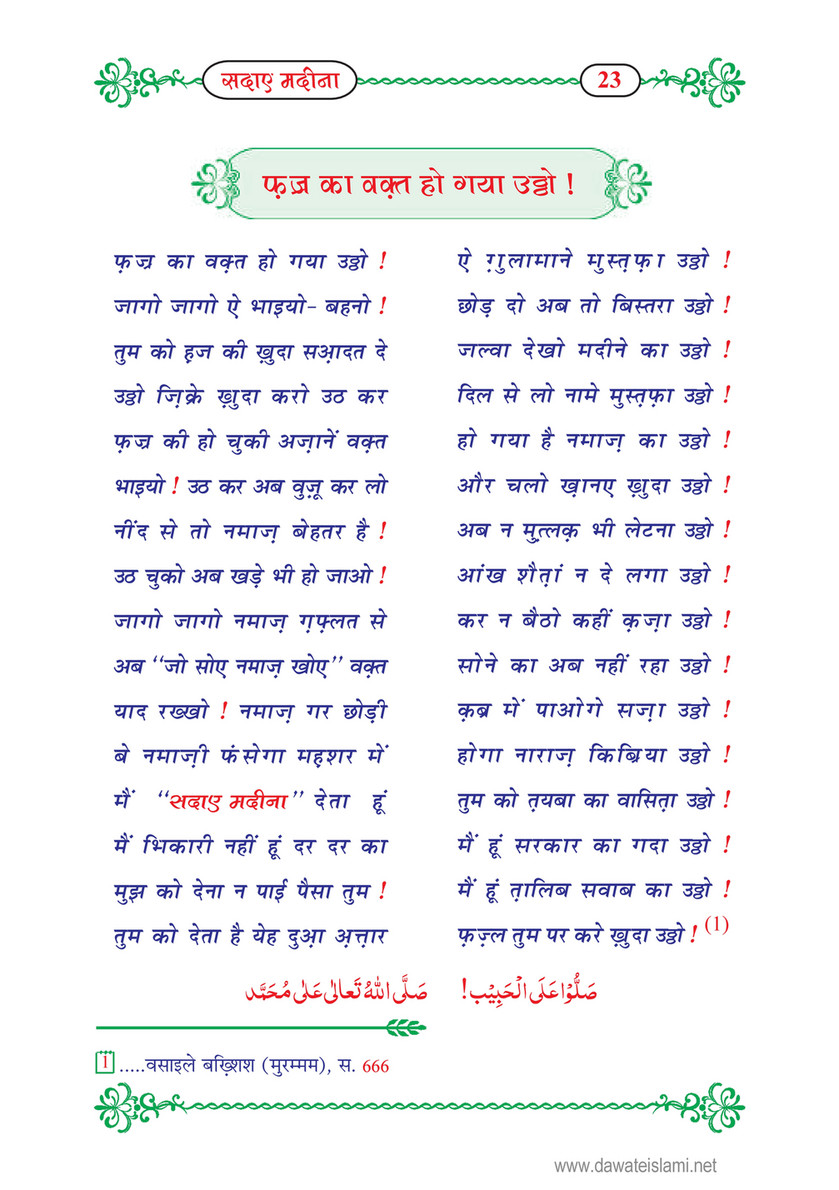 सदाए मदीना 23
फ़ज्र का वक़्त हो गया उठ्ठो !
फ़ज्र का वक़्त हो गया उठ्ठो ! ऐ ग़ुलामाने मुस्त़फ़ा उठ्ठो !
जागो जागो ऐ भाइयो- बहनो ! छोड़ दो अब तो बिस्तरा उठ्ठो !
तुम को ह़ज की ख़ुदा सआ़दत दे जल्वा देखो मदीने का उठ्ठो !
उठ्ठो ज़िक्रे ख़ुदा करो उठ कर दिल से लो नामे मुस्त़फ़ा उठ्ठो !
फ़ज्र की हो चुकी अज़ानें वक़्त हो गया है नमाज़ का उठ्ठो !
भाइयो ! उठ कर अब वुज़ू कर लो और चलो ख़ानए ख़ुदा उठ्ठो !
नींद से तो नमाज़ बेहतर है ! अब न मुत़्लक़ भी लेटना उठ्ठो !
उठ चुको अब खड़े भी हो जाओ ! आंख शैत़ां न दे लगा उठ्ठो !
जागो जागो नमाज़ ग़फ़्लत से कर न बैठो कहीं क़ज़ा उठ्ठो !
अब “जो सोए नमाज़ खोए” वक़्त सोने का अब नहीं रहा उठ्ठो !
याद रख्खो ! नमाज़ गर छोड़ी क़ब्र में पाओगे सज़ा उठ्ठो !
बे नमाज़ी फंसेगा मह़शर में होगा नाराज़ किब्रिया उठ्ठो !
मैं “सदाए मदीना” देता हूं तुम को त़यबा का वासित़ा उठ्ठो !
मैं भिकारी नहीं हूं दर दर का मैं हूं सरकार का गदा उठ्ठो !
मुझ को देना न पाई पैसा तुम ! मैं हूं त़ालिब सवाब का उठ्ठो !
तुम को देता है येह दुआ़ अ़त्त़ार फ़ज़्ल तुम पर करे ख़ुदा उठ्ठो ! (1)
صَلُّوْا عَلَی الْحَبِیْب! صَلَّی اللهُ تَعَالٰی عَلٰی مُحَمَّد
1 .....वसाइले बख़्शिश (मुरम्मम), स. 666
www.dawateislami.net